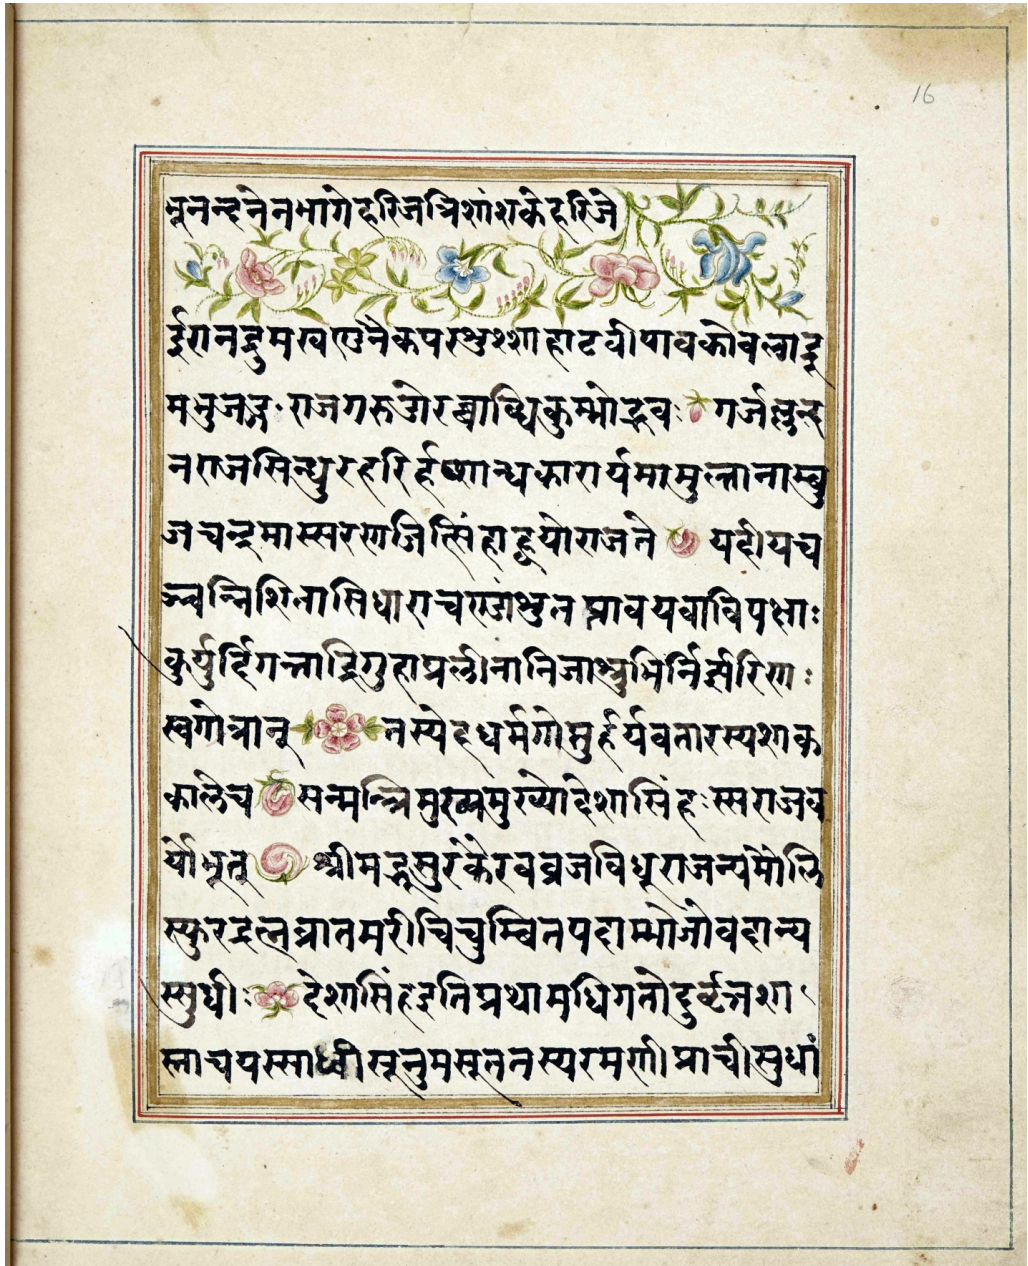 16
भूनन्दनेनभागेहरिजत्रिशांशकेहरिजे
ईरानद्रुमखण्डनैकपरशुश्शाहाटवीपावकोवल्वाद्रू
मभुजङ्गराजगरुडोरब्राब्धिकुम्भोद्भवः गर्जल्लुन्द
नराजसिन्धुरहरिर्हूणान्धकारार्यमामुल्तानाम्बु
जचन्द्रमास्सरणजित्सिंहाह्वयोराजते यदीयच
ञ्चन्निशितासिधाराचण्डांशुतप्तावयवाविपक्षाः
कुर्युर्दिगन्ताद्रिगुहाप्रलीनानिजाश्रुभिर्निर्झरिणाः
स्वगोत्रान् तस्येहधर्मगोप्तुर्हर्यवतारस्यशाक
कालेच सन्मन्त्रिमुख्यमुख्योदेशासिंहःस्सराजव
र्योभूत् श्रीमद्भूसुरकैरवव्रजविधूराजन्यमौलि
स्फुरद्रत्नव्रातमरीचिचुम्बितपदाम्भोजोवदान्य
स्सुधीः देशासिंहइतिप्रथामधिगतोदुर्वृत्तशा
स्ताचयस्साध्वीसूनुमसूततस्यरमणीप्राचीसुधां